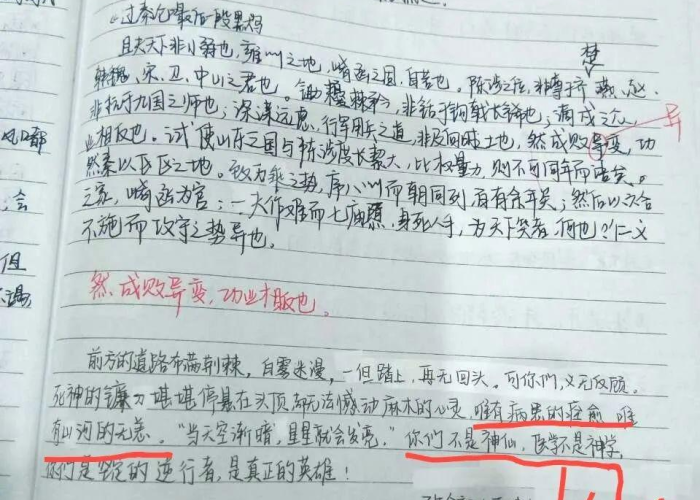 过秦论最后一段默写
且夫天下非小弱也，雍州之地，崤函之固，自若也。陈涉之位，非尊于齐 燕、赵、
楚
韩魏、宋、卫、中山之君也。锄耰棘矜，非铦于钩戟长铩也；谪戍之众，
非抗于九国之师也；深谋远虑，行军用兵之道，非及向时士也，然成败异变，功
异
业相反也。试使山东之国与陈涉度长絜大，比权量力，则不可同年而语矣。
然秦以区区之地。致万乘之势，序八州而朝同列，百有余年矣；然后以六合
之家，崤函为宫；一夫作难而七庙隳，身死人手，为天下笑者，何也？仁义
不施而攻守之势异也。
然成败异变，功业相反也。
前方的道路布满荆棘，白雾迷漫，一但踏上，再无回头。可你们，义无反顾。
死神的镰刀堪堪停悬在头顶却无法撼动麻木的心灵 唯有病患的痊愈 唯
有山河的无恙。“当天空渐暗，星星就会发亮。”你们不是神仙，医学不是神学，
你们是坚定的逆行者，是真正的英雄！
会
但